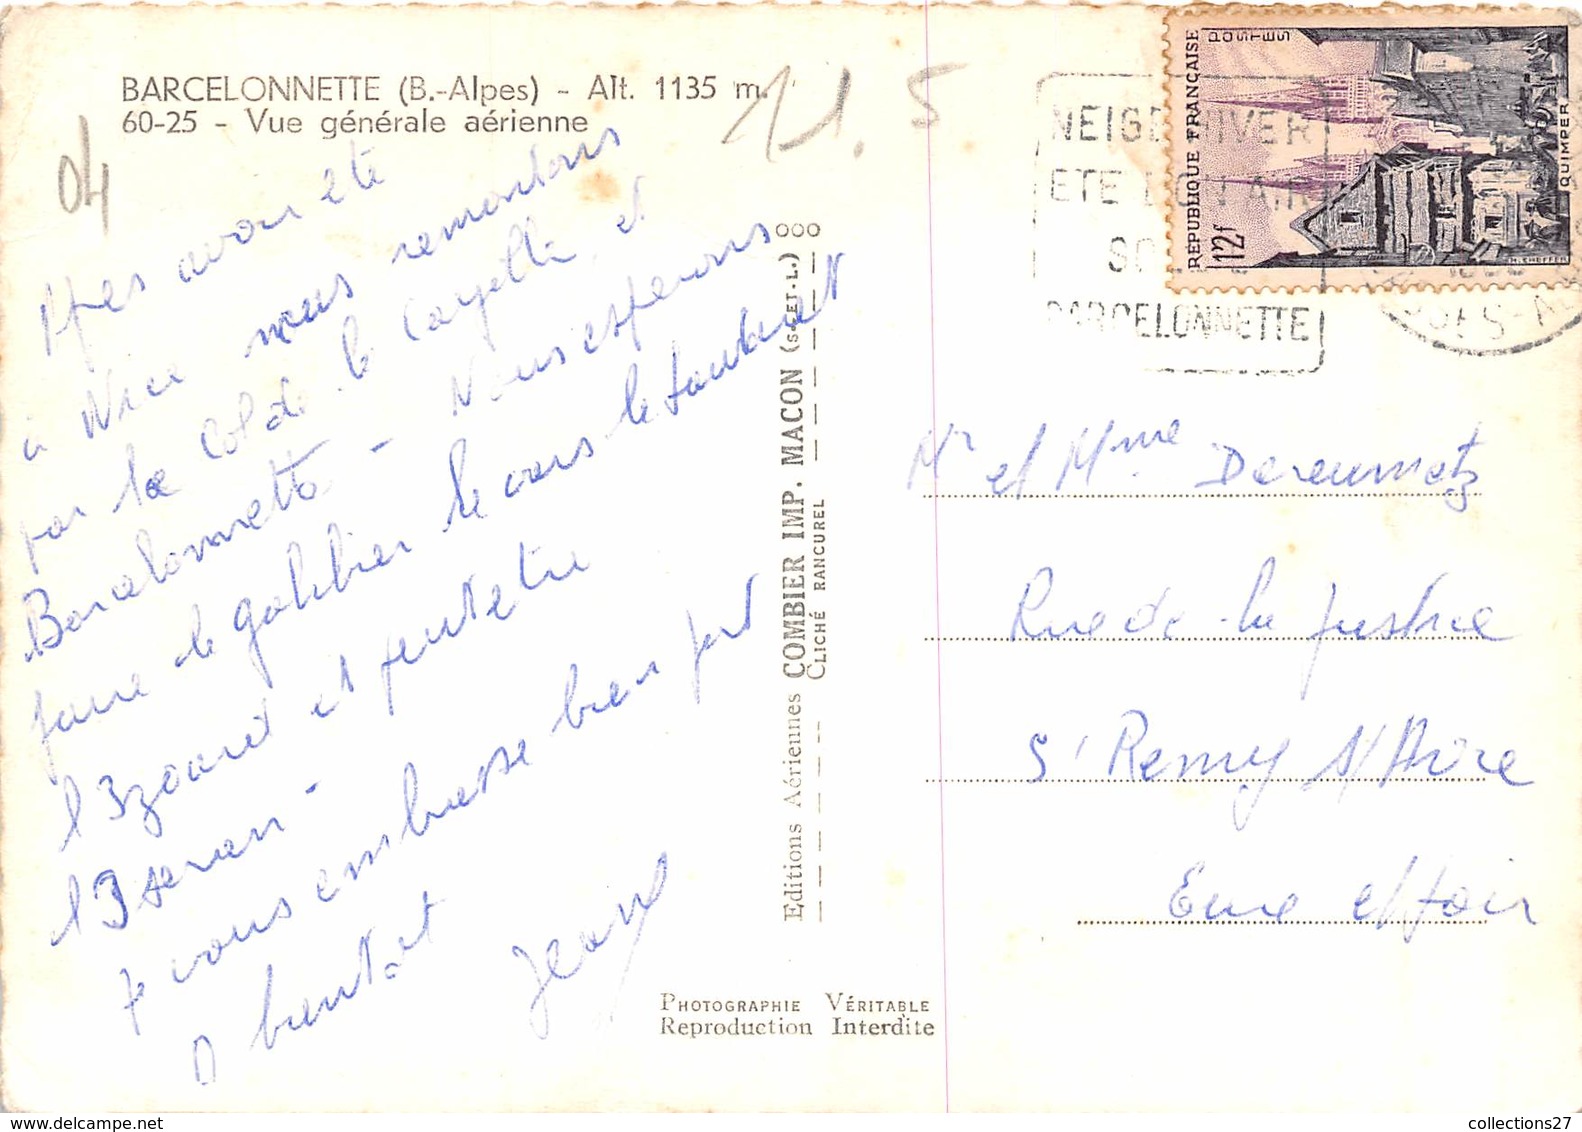 BARCELONNETTE (B.-Alpes) - Alt. 1135 m.
60-25 - Vue générale aérienne
04
21.5
Apres avoir ete
à Nice nous remontons
par le Col de la Cayolle et
Barcelonnette - Nous esperons
faire le galibier le vars le lautaret
l Izoard et peut etre
l Iseran -
Je vous embrasse bien fort
A bientot
Jean
Editions Aériennes COMBIER IMP. MACON (S. ET-L.)
CLICHÉ RANCUREL
PHOTOGRAPHIE VÉRITABLE
Reproduction Interdite
NEIGE HIVER
ETE BON AIR
SOLEIL
BARCELONNETTE
RÉPUBLIQUE FRANÇAISE
POSTES
12f
QUIMPER
H. CHEFFER
Mr et Mme
Rue de la Justice
St Remy s/Avre
Eure et Loir
collections27